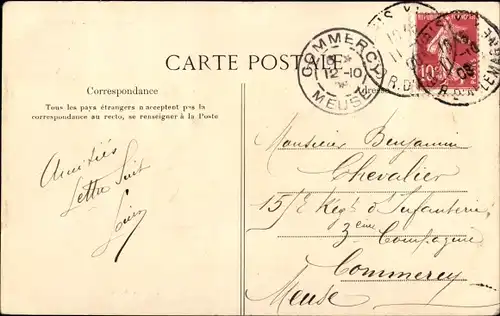 CARTE POSTALE
Correspondance
Tous les pays étrangers n'acceptent pas la
correspondance au recto, se renseigner à la Poste
COMMERCY
12-10
MEUSE
10c
Amitiés
Lettre suit
Monsieur Benjamin
Chevalier
15/E Regt d'Infanterie
3ème Compagnie
Commercy
Meuse